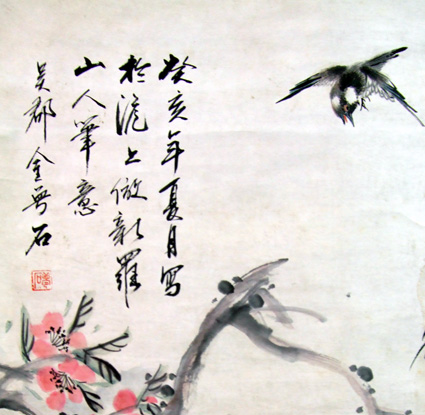 癸亥年夏月写
於滬上倣新羅
山人筆意
吴郡金粤石